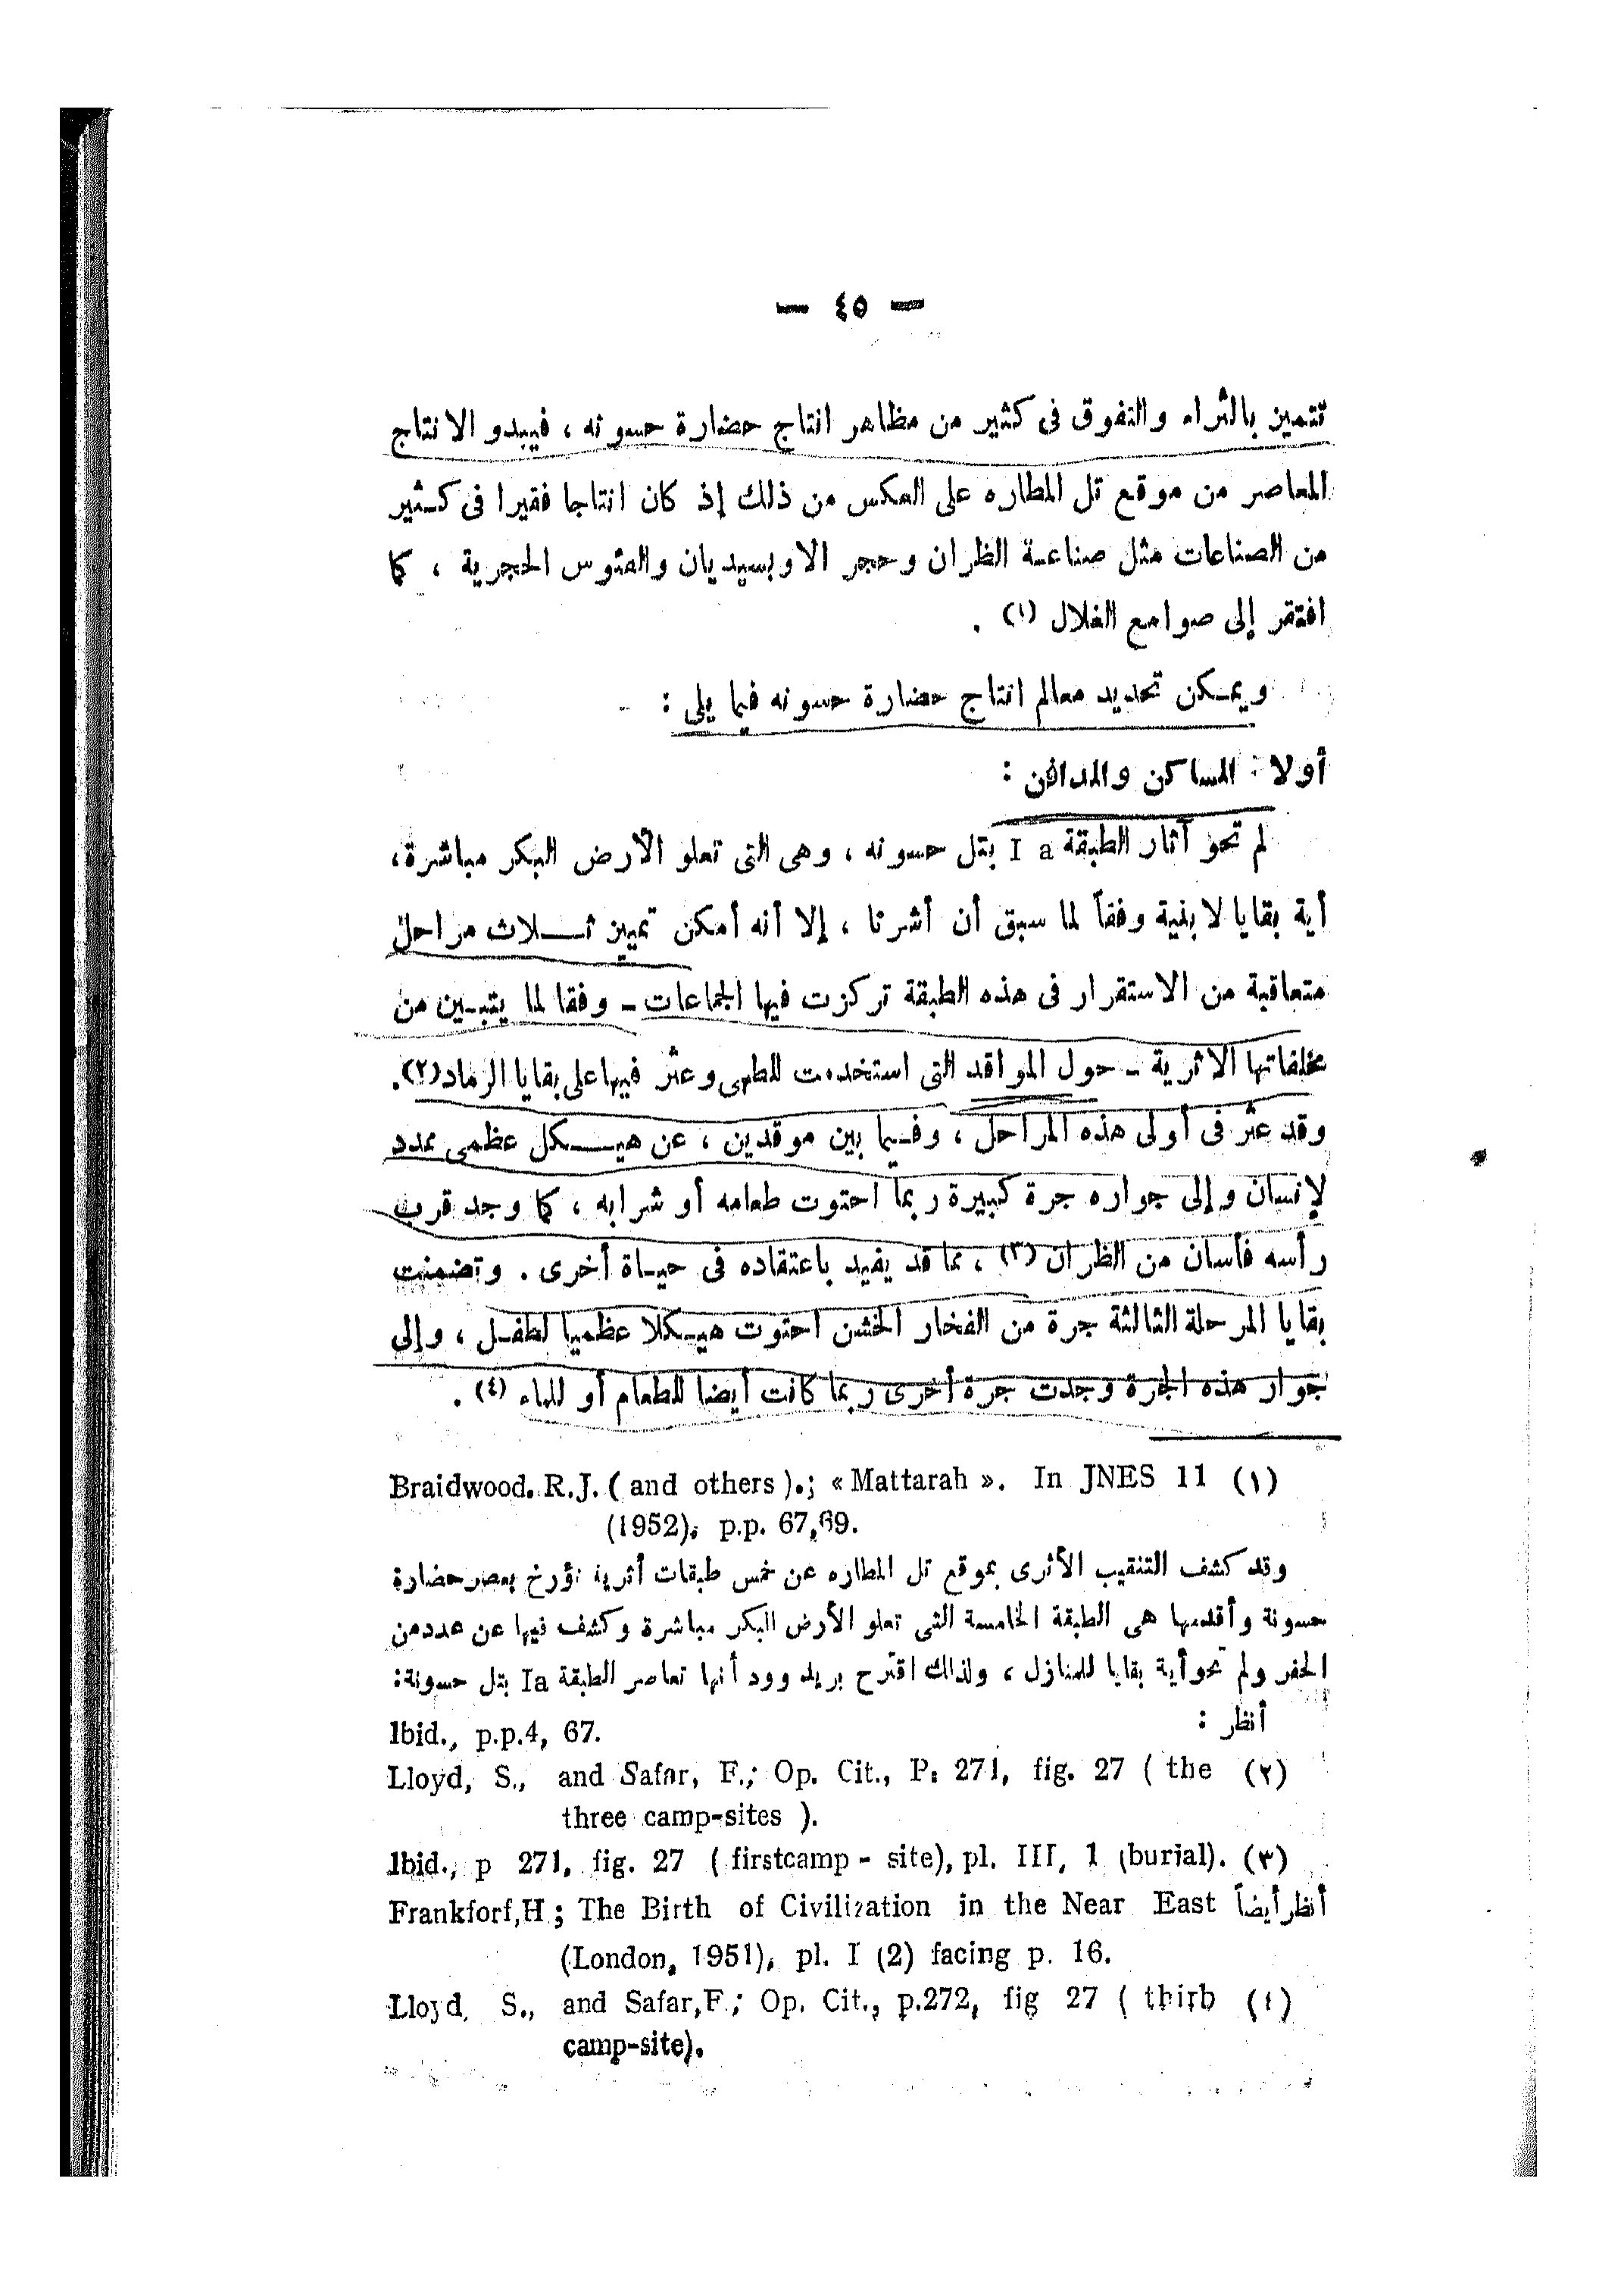 — ٤٥ —
تتميز بالثراء والتفوق فى كثير من مظاهر انتاج حضارة حسونه ، فيبدو الانتاج
المعاصر من موقع تل المطاره على العكس من ذلك إذ كان انتاجا فقيرا فى كثير
من الصناعات مثل صناعة الظران وحجر الاوبسيديان والفئوس الحجرية ، كما
افتقر إلى صوامع الغلال (١) .
ويمكن تحديد معالم انتاج حضارة حسونه فيما يلى :
أولا : المساكن والمدافن :
لم تحو آثار الطبقة I a بتل حسونه ، وهى التى تعلو الأرض البكر مباشرة،
أية بقايا لابنية وفقاً لما سبق أن أشرنا ، إلا أنه أمكن تمييز ثلاث مراحل
متعاقبة من الاستقرار فى هذه الطبقة تركزت فيها الجماعات - وفقا لما يتبين من
مخلفاتها الاثرية - حول المواقد التى استخدمت للطهى وعثر فيها على بقايا الرماد(٢).
وقد عثر فى أولى هذه المراحل ، وفيما بين موقدين ، عن هيكل عظمى ممدد
لإنسان وإلى جواره جرة كبيرة ربما احتوت طعامه أو شرابه ، كما وجد قرب
رأسه فأسان من الظران (٣) ، مما قد يفيد باعتقاده فى حياة أخرى . وتضمنت
بقايا المرحلة الثالثة جرة من الفخار الخشن احتوت هيكلا عظميا لطفل ، وإلى
جوار هذه الجرة وجدت جرة أخرى ربما كانت أيضا للطعام أو للماء (٤) .
Braidwood. R.J. ( and others ).; « Mattarah ». In JNES 11 (١)
(1952), p.p. 67,69.
وقد كشف التنقيب الأثرى بموقع تل المطاره عن خمس طبقات أثرية تؤرخ بعصر حضارة
حسونة وأقدمها هى الطبقة الخامسة التى تعلو الأرض البكر مباشرة وكشف فيها عن عدد من
الحفر ولم تحو أية بقايا للمنازل ، ولذلك اقترح بريد وود أنها تعاصر الطبقة Ia بتل حسونة:
أنظر :
Ibid., p.p.4, 67.
Lloyd, S., and Safar, F.; Op. Cit., P. 271, fig. 27 ( the (٢)
three camp-sites ).
Ibid., p 271, fig. 27 ( firstcamp - site), pl. III, 1 (burial). (٣)
Frankforf,H ; The Birth of Civilization in the Near East أنظر أيضاً
(London, 1951), pl. I (2) facing p. 16.
Lloyd, S., and Safar,F.; Op. Cit., p.272, fig 27 ( thirb (٤)
camp-site).